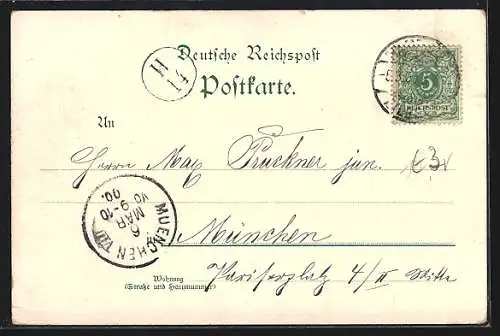 Deutsche Reichspost
H
14
Postkarte.
5
REICHSPOST
An
Herrn Max Pruckner jun.
München
MUENCHEN VIII
6
MÄR
9-10
00.
Wohnung
(Straße und Hausnummer)
Pariserplatz 4/II Mitte